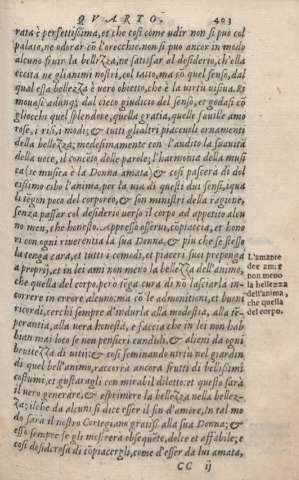 QVARTO. 403
rata è perfettissima, et che cosi come udir non si puo col
palato, ne odorar cō l'orecchie: non si puo ancor in modo
alcuno fruir la bellezza, ne satisfar al desiderio, ch'ella
eccita ne gli animi nostri, col tatto, ma cō quel senso, dal
qual essa bellezza è vero obietto, che è la virtù uisiua. Ri
mouasi adunqʒ dal cieco giudicio del senso, et godasi cō
gliocchi quel splendore, quella gratia, quelle fauille amo
rose, i risi, i modi, & tutti gli altri piaceuoli ornamenti
della bellezza; medesimamente con l'audito la suauità
della voce, il concēto delle parole; l'harmonia della musi
ca (se musica è la Donna amata) & cosi pascerà di dol
cissimo cibo l'anima, per la via di questi dui sensi, iquai
tēgon poco del corporeo, & son ministri della ragione,
senza passar col desiderio verso il corpo ad appetito alcu
no men, che honesto. Appresso osserui, cōpiaccia, et hono
ri con ogni riuerentia la sua Donna, & piu che se stesso
la tenga cara, et tutti i comodi, et piaceri suoi preponga
a proprij, et in lei ami non meno la bellezza dell'animo,
che quella del corpo, però tēga cura di nō lasciarla in-
correre in errore alcuno, ma cō le admonitioni, et buoni
ricordi, cerchi sempre d'indurla alla modestia, alla tē-
perantia, alla uera honestà, e faccia che in lei non hab
bian mai loco se non pensieri candidi, & alieni da ogni
bruttezza di uitij: & cosi seminando uirtù nel giardin
di quel bell'animo, raccorrà ancora frutti di bellissimi
costumi, et gustaragli con mirabil diletto: et questo sarà
il uero generare, & esprimere la bellezza nella bellez-
za; ilche da alcuni si dice esser il fin d'amore. In tal mo
do sarà il nostro Cortegiano gratiss. alla sua Donna; &
essa sempre se gli mostrerà obsequēte, dolce et affabile; e
cosi desiderosa di cōpiacergli, come d'esser da lui amata,
CC ij
L'amante
dee amar
non meno
la bellezza
dell'anima,
che quella
del corpo.